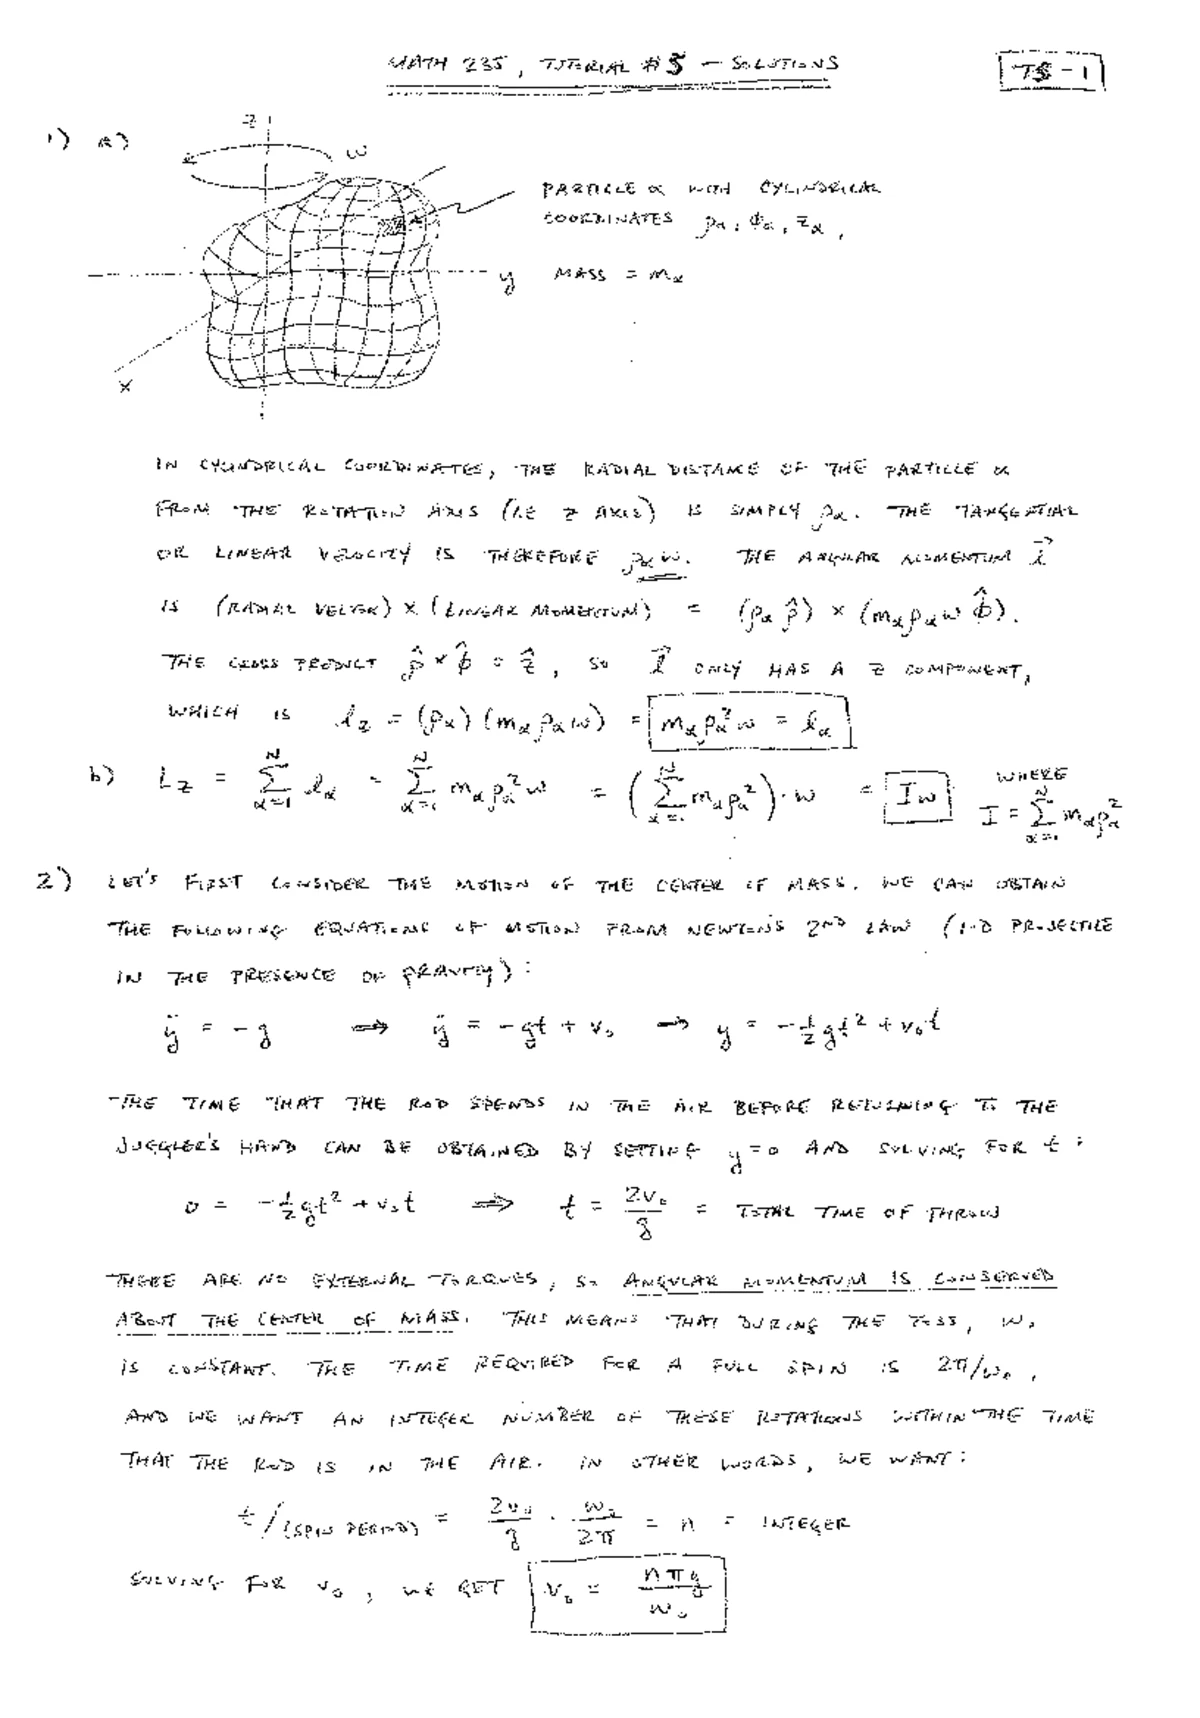 MATH 235, TUTORIAL #5 – SOLUTIONS
T5-1
1) a)
z
ω
PARTICLE α WITH CYLINDRICAL
COORDINATES ρα, φα, zα,
y
MASS = mα
x
IN CYLINDRICAL COORDINATES, THE RADIAL DISTANCE OF THE PARTICLE α
FROM THE ROTATION AXIS (I.E Z AXIS) IS SIMPLY ρα. THE TANGENTIAL
OR LINEAR VELOCITY IS THEREFORE ραω. THE ANGULAR MOMENTUM l⃗
IS (RADIAL VECTOR) × (LINEAR MOMENTUM) = (ρα ρ̂) × (mα ρα ω φ̂).
THE CROSS PRODUCT ρ̂ × φ̂ = ẑ, SO l⃗ ONLY HAS A Z COMPONENT,
WHICH IS lz = (ρα)(mα ρα ω) = mα ρα² ω = lα
b) Lz = Σ_{α=1}^{N} lα = Σ_{α=1}^{N} mα ρα² ω = (Σ_{α=1}^{N} mα ρα²)·ω = Iω WHERE I = Σ_{α=1}^{N} mα ρα²
2) LET'S FIRST CONSIDER THE MOTION OF THE CENTER OF MASS. WE CAN OBTAIN
THE FOLLOWING EQUATIONS OF MOTION FROM NEWTON'S 2ND LAW (1-D PROJECTILE
IN THE PRESENCE OF GRAVITY):
ÿ = -g ⟹ ÿ = -gt + v₀ ⟹ y = -½gt² + v₀t
THE TIME THAT THE ROD SPENDS IN THE AIR BEFORE RETURNING TO THE
JUGGLER'S HAND CAN BE OBTAINED BY SETTING y=0 AND SOLVING FOR t:
0 = -½gt² + v₀t ⟹ t = 2v₀/g = TOTAL TIME OF THROW
THERE ARE NO EXTERNAL TORQUES, SO ANGULAR MOMENTUM IS CONSERVED
ABOUT THE CENTER OF MASS. THIS MEANS THAT DURING THE TOSS, ω₀
IS CONSTANT. THE TIME REQUIRED FOR A FULL SPIN IS 2π/ω₀,
AND WE WANT AN INTEGER NUMBER OF THESE ROTATIONS WITHIN THE TIME
THAT THE ROD IS IN THE AIR. IN OTHER WORDS, WE WANT:
t/(SPIN PERIOD) = 2v₀/g · ω₀/2π = n = INTEGER
SOLVING FOR v₀, WE GET v₀ = nπg/ω₀